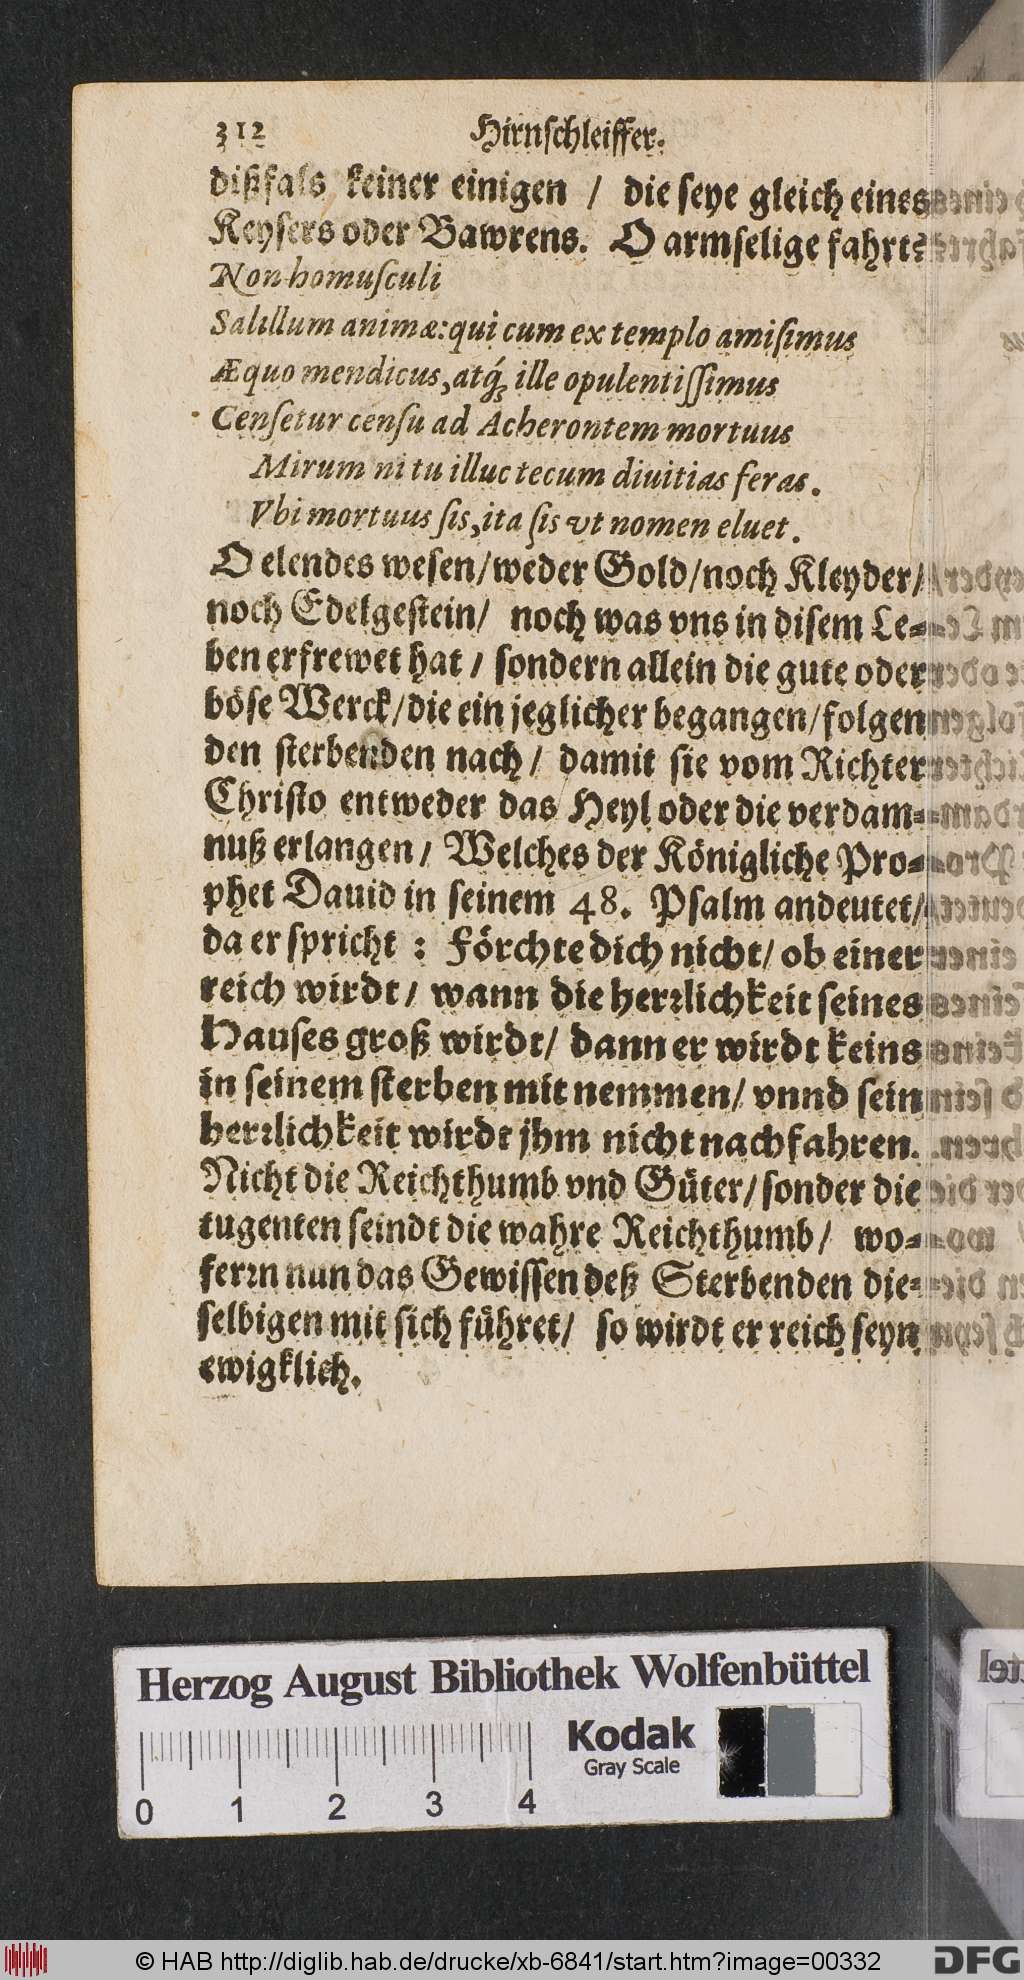 312 Hirnschleiffer.
dißfals keiner einigen / die seye gleich eines
Keysers oder Bawrens. O armselige fahrt?
Non homusculi
Salillum animæ: qui cum ex templo amisimus
Æquo mendicus, atq́; ille opulentissimus
Censetur censu ad Acherontem mortuus
Mirum ni tu illuc tecum diuitias feras.
Vbi mortuus sis, ita sis vt nomen eluet.
O elendes wesen/weder Gold/noch Kleyder/
noch Edelgestein/ noch was vns in disem Le-
ben erfrewet hat / sondern allein die gute oder
böse Werck/die ein jeglicher begangen/folgen
den sterbenden nach/ damit sie vom Richter
Christo entweder das Heyl oder die verdam-
nuß erlangen/ Welches der Königliche Pro-
phet Dauid in seinem 48. Psalm andeutet/
da er spricht : Förchte dich nicht/ ob einer
reich wirdt/ wann die herrlichkeit seines
Hauses groß wirdt/ dann er wirdt keins
in seinem sterben mit nemmen/ vnnd sein
herrlichkeit wirdt jhm nicht nachfahren.
Nicht die Reichthumb vnd Güter/sonder die
tugenten seindt die wahre Reichthumb/ wo-
ferrn nun das Gewissen deß Sterbenden die-
selbigen mit sich führet/ so wirdt er reich seyn
ewigklich.
Herzog August Bibliothek Wolfenbüttel
Kodak
Gray Scale
0 1 2 3 4
© HAB http://diglib.hab.de/drucke/xb-6841/start.htm?image=00332
DFG